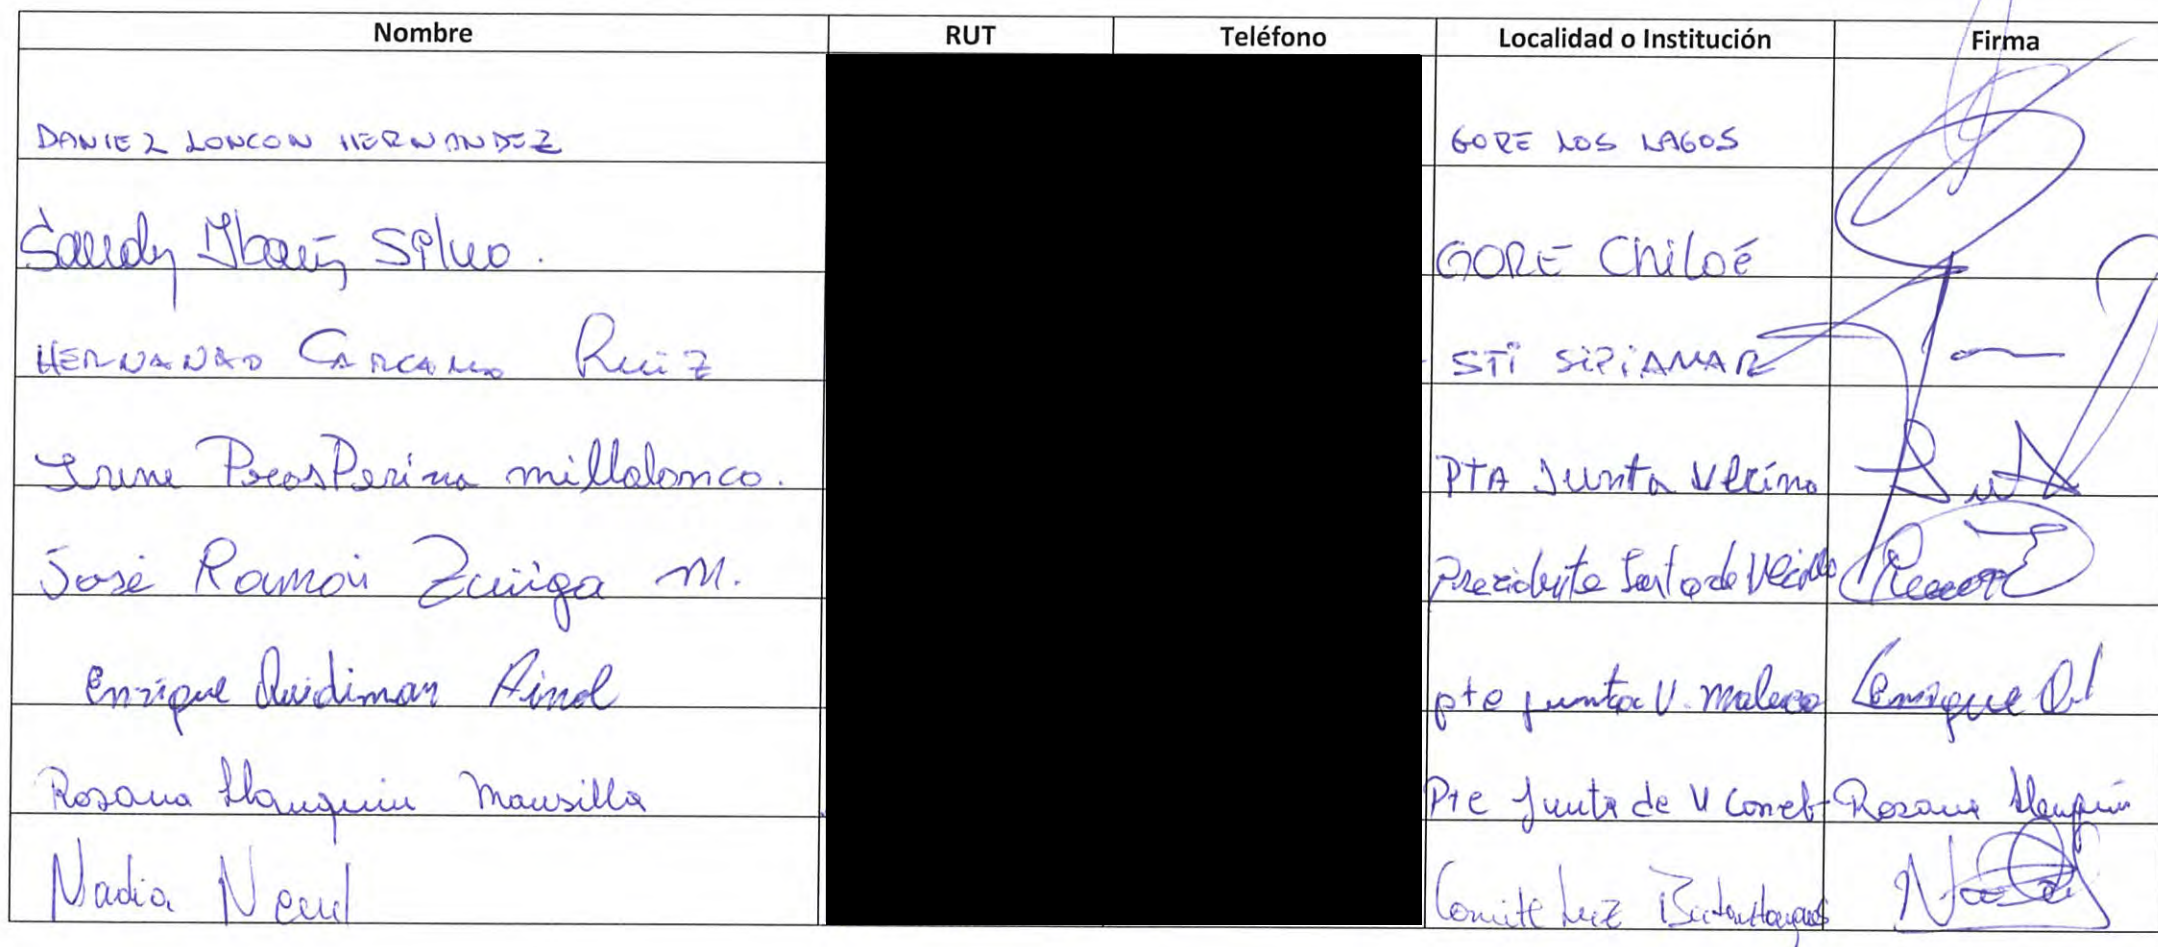 Nombre RUT Teléfono Localidad o Institución Firma
DANIEL LONCON HERNANDEZ GORE LOS LAGOS
Sandy Silva. GORE Chiloé
HERNANDO CARCAMO Ruiz STI SIPIAMAR
Irene ProsPerina millalonco. PTA Junta Vecino
José Ramón Zuñiga M. Junta de Ramon
Enrique Quidiman Ainol pte junta V. Enrique
Rosana Llanquin Mansilla Pte Junta de V Rosana Llanquin
Nadia Comité Luz